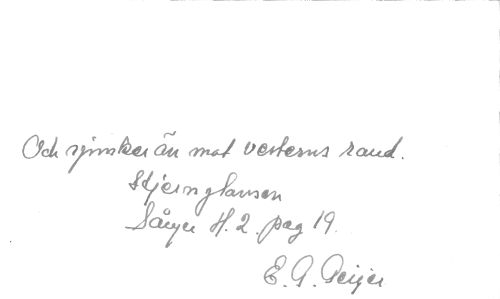 Och sjunker än mot vesterns rand.
Stjernglansen
Sånger H. 2. pag 19.
E. G. Geijer